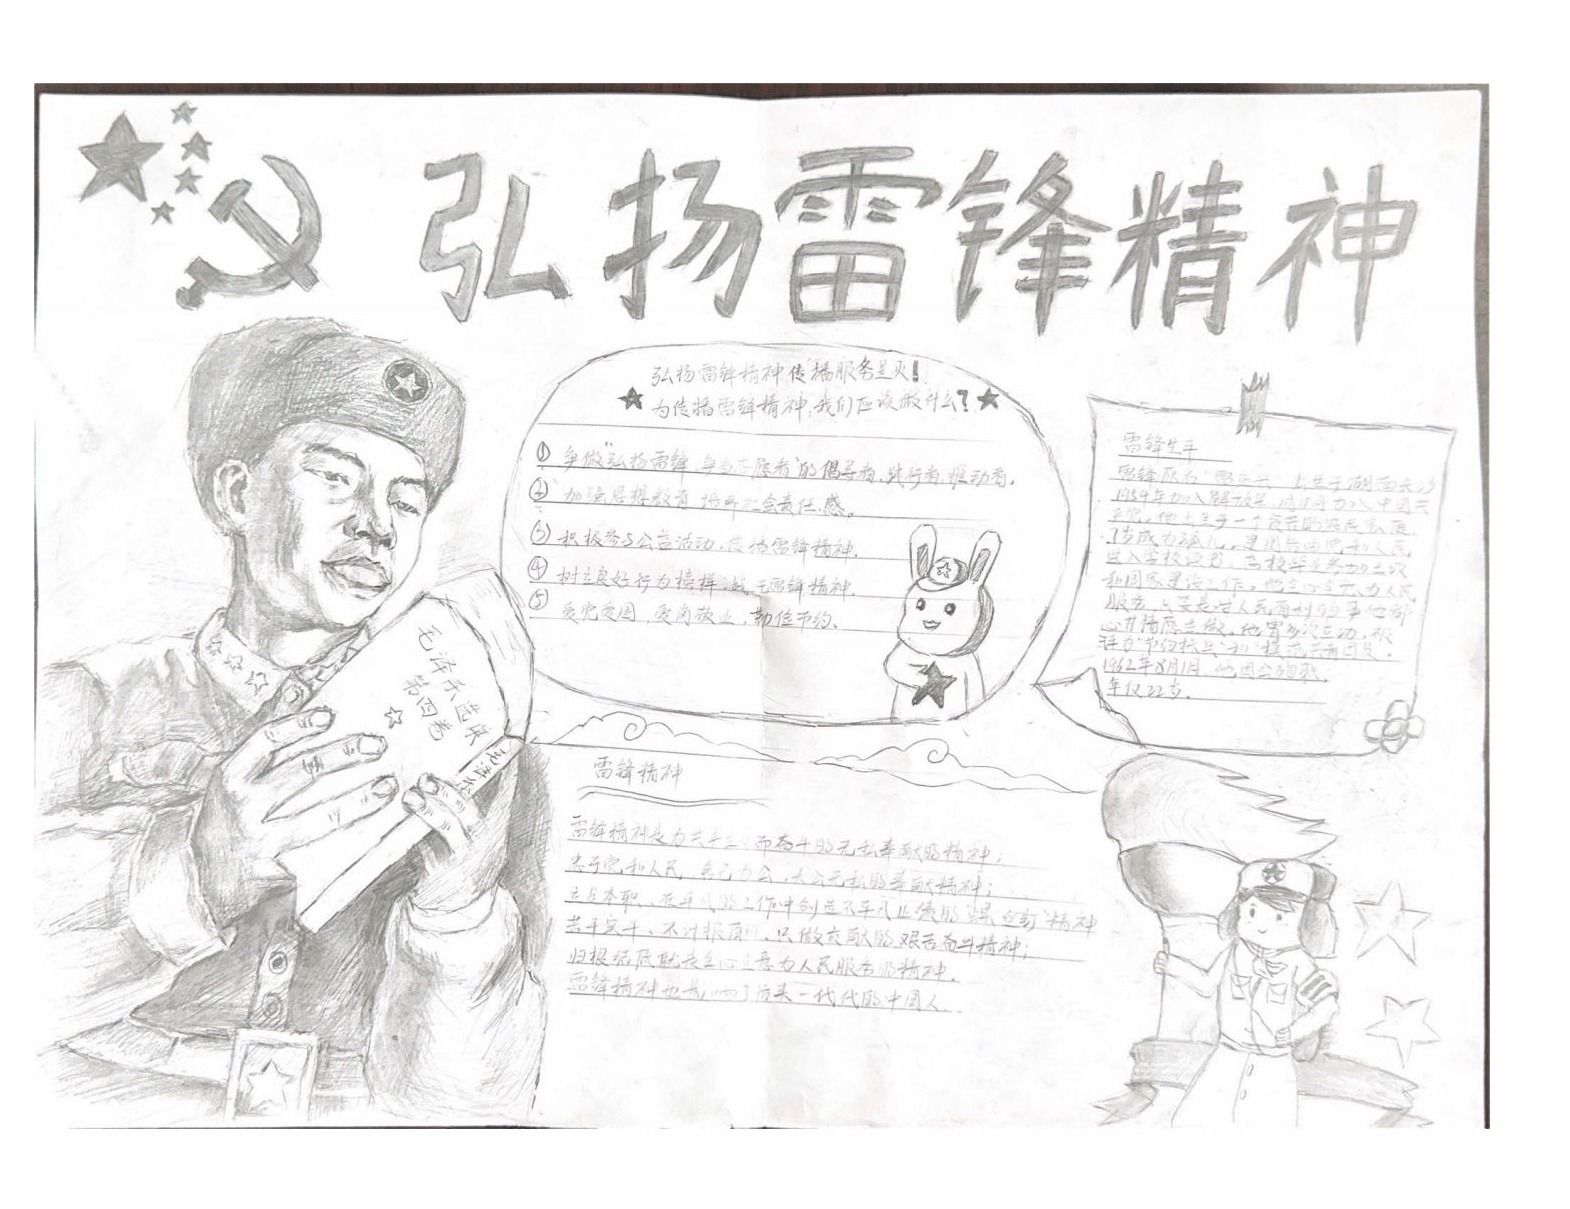 弘扬雷锋精神
弘扬雷锋精神,传播服务星火!
为传播雷锋精神,我们应该做什么?
① 争做"弘扬雷锋,争当志愿者"的倡导者,践行者,推动者。
② 加强思想教育 社会责任感。
③ 积极参与公益活动,传播雷锋精神.
④ 树立良好行为榜样, 雷锋精神.
⑤ 爱党爱国,爱岗敬业,勤俭节约.
毛泽东选集
第四卷
毛泽东
雷锋生平
雷锋原名 生于湖南长沙
加入解放军, 加入中国共
产党。他出生于一个贫苦的农民家庭
7岁成为孤儿, 建国后由党和人民
进入学校读书, 高校毕业参加
和国家建设工作。他全心全意为人民
服务, 人民有利的事他都
心甘情愿去做。他曾多次立功, 被
评为"节约标兵"和"模范共青团员".
1962年8月1日,他因公殉职,
年仅22岁.
雷锋精神
雷锋精神是为共产主义而奋斗的无私奉献的精神;
忠于党和人民、舍己为公、大公无私的奉献精神;
立足本职、在平凡的工作中创造不平凡业绩的"螺丝钉"精神
苦干实干、不计报酬、只做贡献的艰苦奋斗精神;
归根结底就是全心全意为人民服务的精神.
雷锋精神也 一代代的中国人.